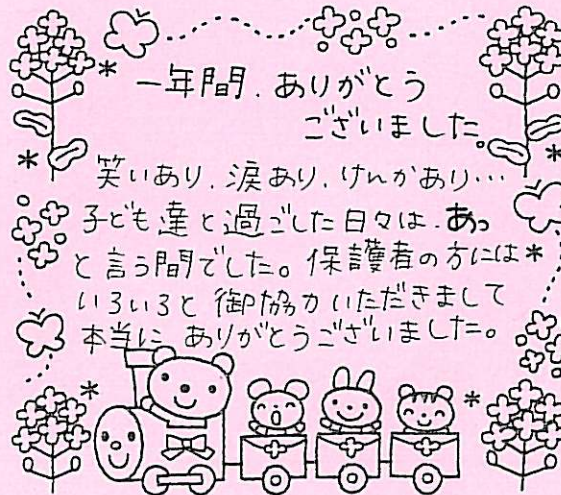 一年間、ありがとう
ございました。
笑いあり、涙あり、けんかあり…
子ども達と過ごした日々は、あっ
と言う間でした。保護者の方には
いろいろと御協力いただきまして
本当に、ありがとうございました。